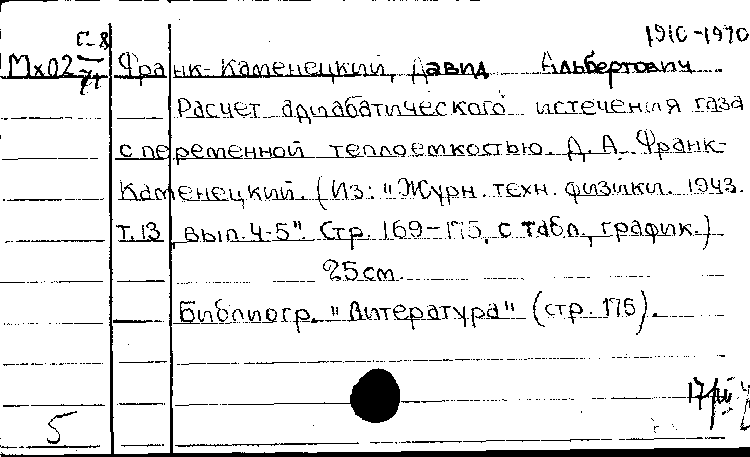 1910-1970
Мх02 Франк-Каменецкий, Давид Альбертович
Расчет адиабатического истечения газа
с переменной теплоемкостью. Д. А. Франк-
Каменецкий. (Из: "Журн. техн. физики. 1943.
т.13, вып. 4-5". Стр. 169-175, с табл., график.)
25см.
Библиогр. "Литература" (стр. 175).
17/III
5